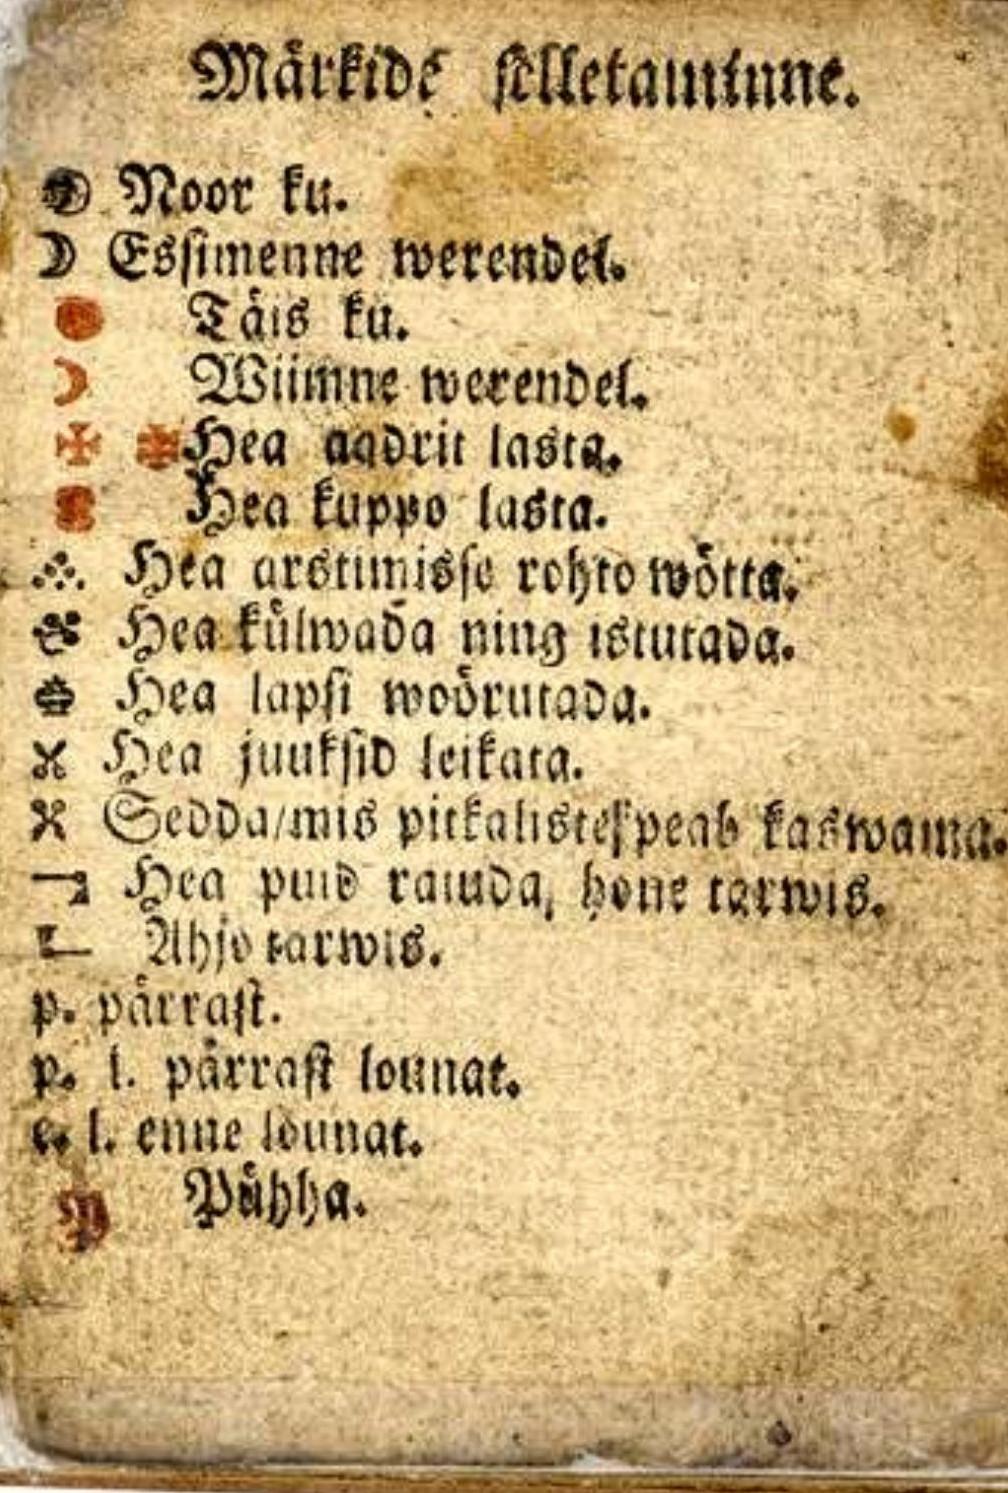 Märkide selletaminne.
Noor ku.
☽ Essimenne werendel.
Täis ku.
☽ Wiimne werendel.
Hea aadrit lasta.
Hea kuppo lasta.
Hea arstimisse rohto wõtta.
Hea külwada ning istutada.
Hea lapsi woörutada.
Hea juuksid leikata.
Sedda/mis pitkalistes peab kaswama.
Hea puid raiuda, hone tarwis.
Ahjo tarwis.
p. pärrast.
p. l. pärrast lounat.
e. l. enne lounat.
P Pühha.